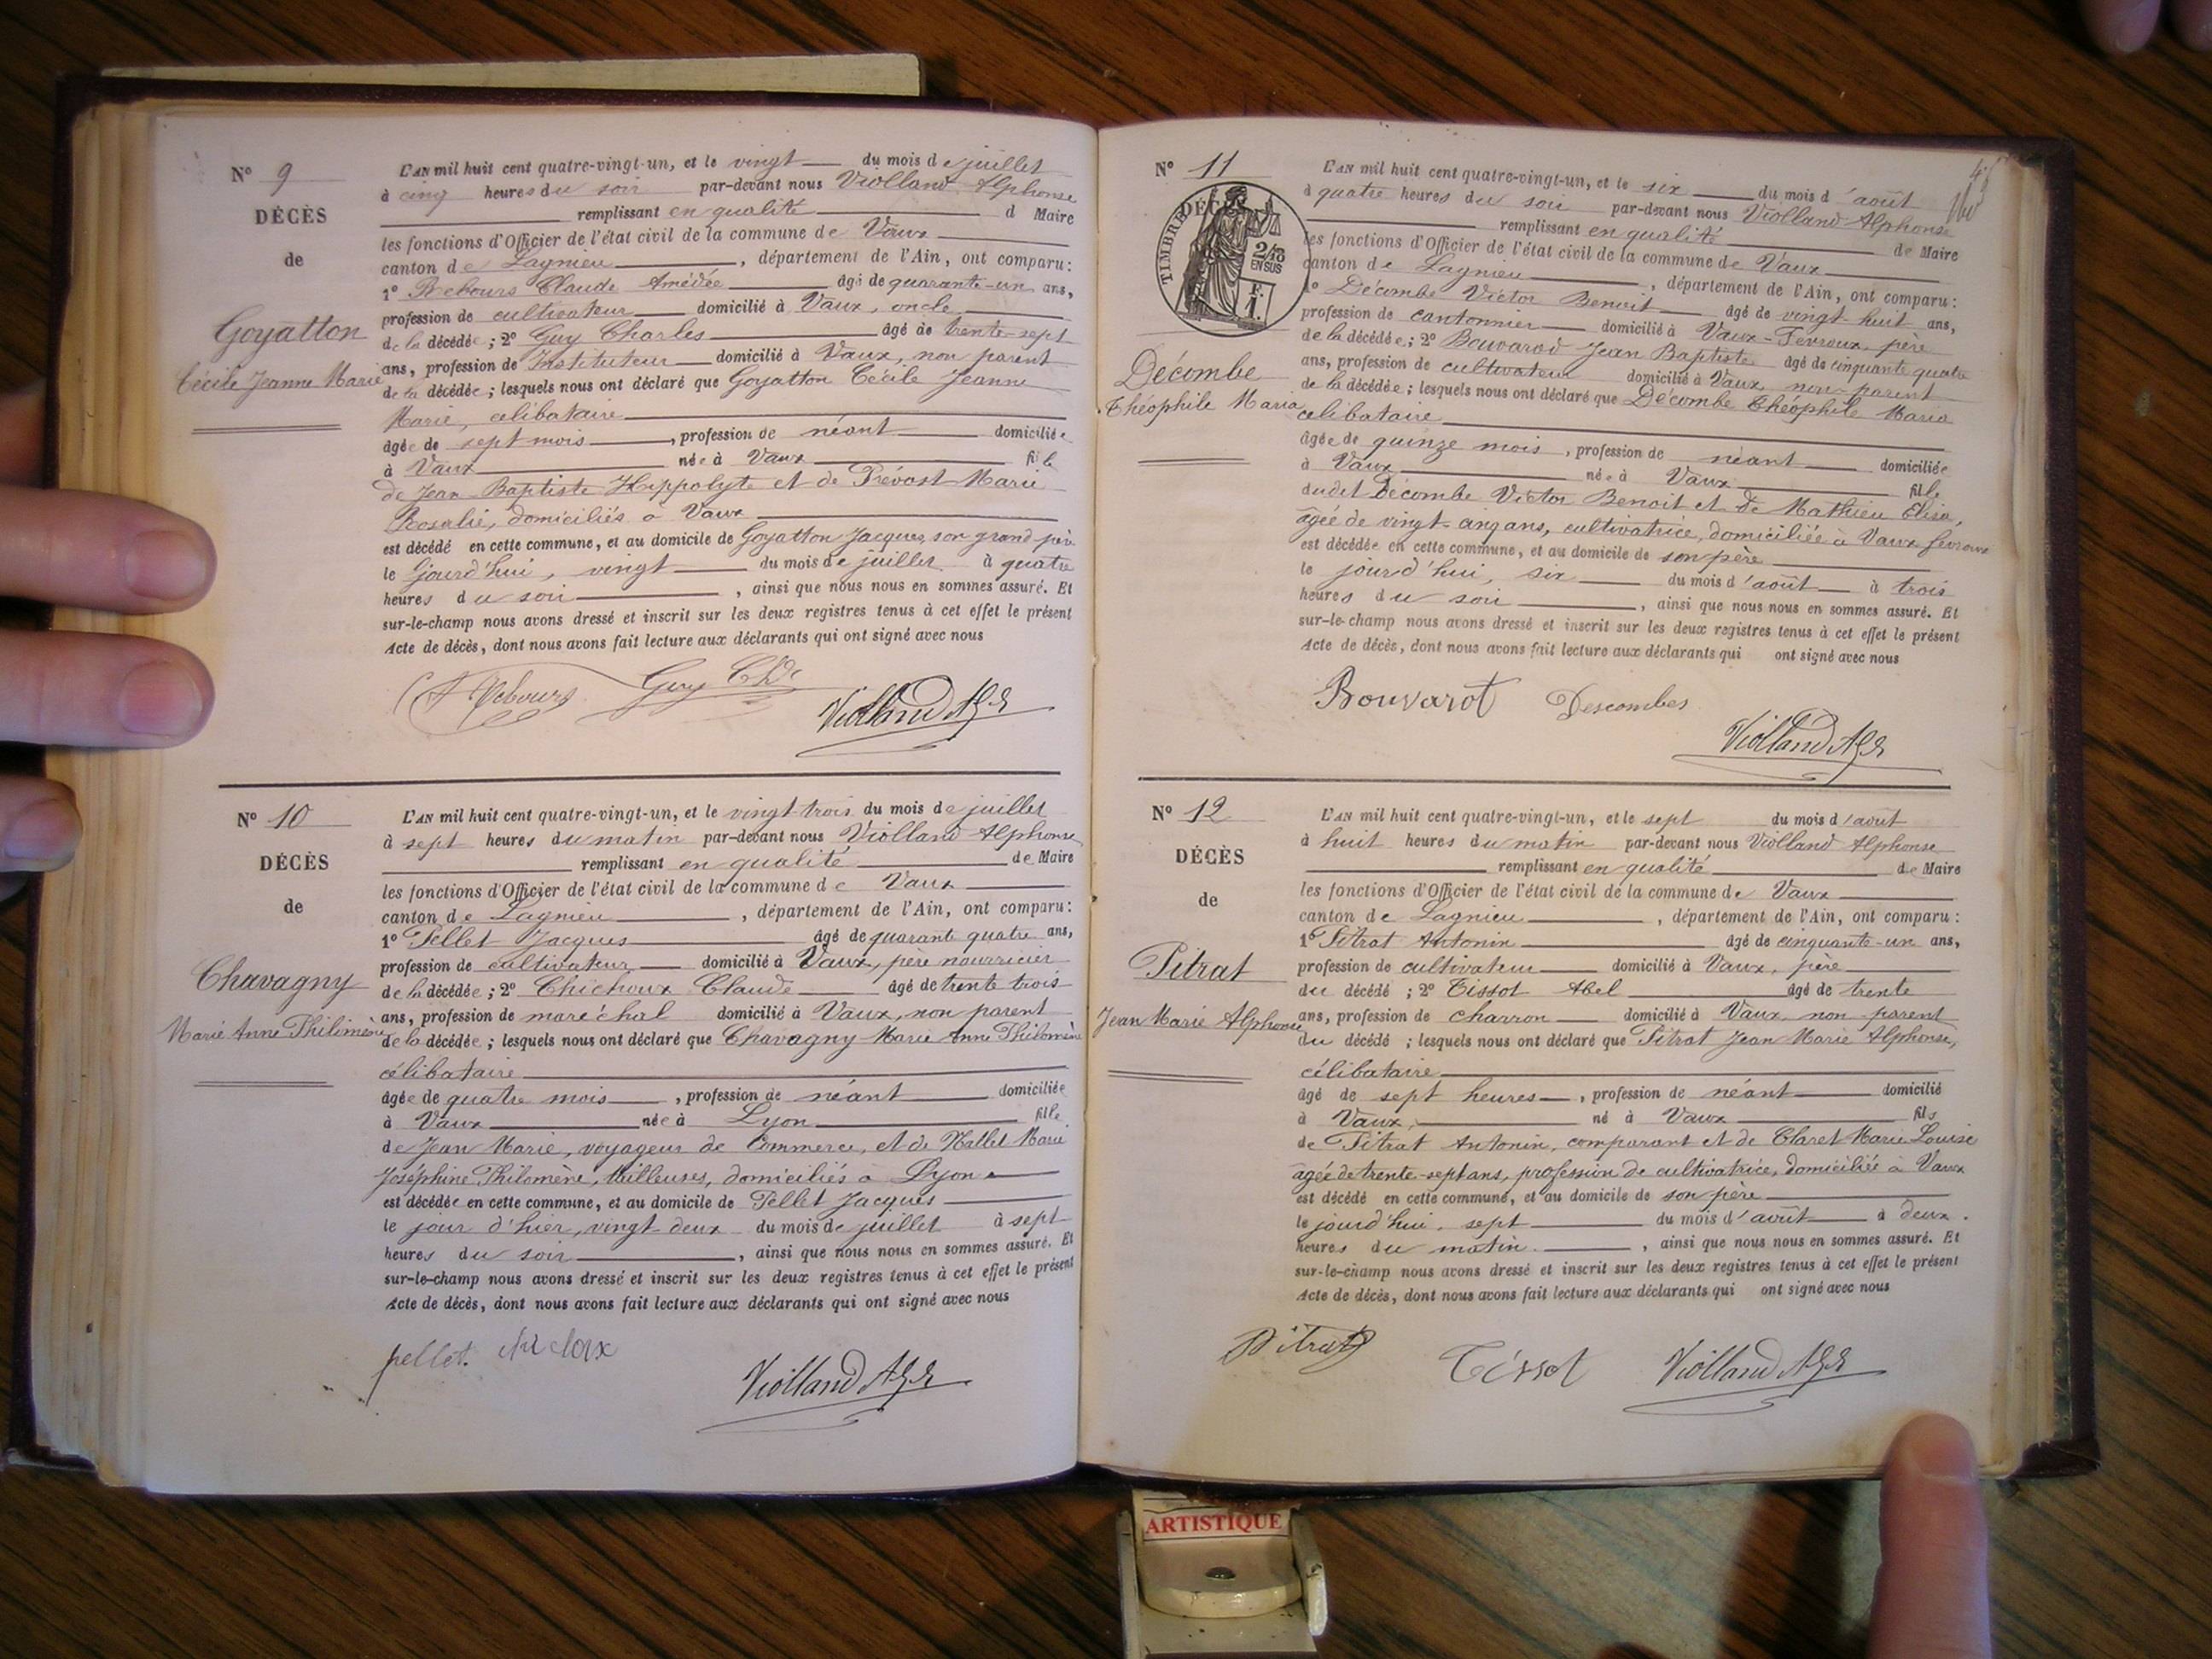 N° 9
DÉCÈS
de
Goyatton
Cécile Jeanne Marie
L'AN mil huit cent quatre-vingt-un, et le vingt du mois de juillet
à cinq heures du soir par-devant nous Violland Alphonse
remplissant en qualité d Maire
les fonctions d'Officier de l'état civil de la commune de Vaux
canton de Lagnieu, département de l'Ain, ont comparu:
1° Rebours Claude Amédée âgé de quarante-un ans,
profession de cultivateur domicilié à Vaux, oncle
de la décédée; 2° Guy Charles âgé de trente-sept
ans, profession de Instituteur domicilié à Vaux, non parent
de la décédée; lesquels nous ont déclaré que Goyatton Cécile Jeanne
Marie, célibataire
âgée de sept mois, profession de néant domiciliée
à Vaux née à Vaux fille
de Jean-Baptiste Hippolyte et de Prévost Marie
Rosalie, domiciliés à Vaux
est décédé en cette commune, et au domicile de Goyatton Jacques, son grand père
le jourd'hui, vingt du mois de juillet à quatre
heures du soir, ainsi que nous nous en sommes assuré. Et
sur-le-champ nous avons dressé et inscrit sur les deux registres tenus à cet effet le présent
Acte de décès, dont nous avons fait lecture aux déclarants qui ont signé avec nous
A Rebours Guy Chles
Violland Alph
N° 10
DÉCÈS
de
Chavagny
Marie Anne Philomène
L'AN mil huit cent quatre-vingt-un, et le vingt trois du mois de juillet
à sept heures du matin par-devant nous Violland Alphonse
remplissant en qualité de Maire
les fonctions d'Officier de l'état civil de la commune de Vaux
canton de Lagnieu, département de l'Ain, ont comparu:
1° Pellet Jacques âgé de quarante quatre ans,
profession de cultivateur domicilié à Vaux, père nourricier
de la décédée; 2° Chichoux Claude âgé de trente trois
ans, profession de maréchal domicilié à Vaux, non parent
de la décédée; lesquels nous ont déclaré que Chavagny Marie Anne Philomène
célibataire
âgée de quatre mois, profession de néant domiciliée
à Vaux née à Lyon fille
de Jean Marie, voyageur de Commerce, et de Mallet Marie
Joséphine Philomène, tailleuses, domiciliés à Lyon
est décédée en cette commune, et au domicile de Pellet Jacques
le jour d'hier, vingt deux du mois de juillet à sept
heures du soir, ainsi que nous nous en sommes assuré. Et
sur-le-champ nous avons dressé et inscrit sur les deux registres tenus à cet effet le présent
Acte de décès, dont nous avons fait lecture aux déclarants qui ont signé avec nous
pellet.
Violland Alph
N° 11
DÉC
TIMBRE
2/10
EN SUS
F.
1.
Décombe
Théophile Maria
L'AN mil huit cent quatre-vingt-un, et le six du mois d'août
à quatre heures du soir par-devant nous Violland Alphonse
remplissant en qualité de Maire
les fonctions d'Officier de l'état civil de la commune de Vaux
canton de Lagnieu, département de l'Ain, ont comparu:
1° Décombe Victor Benoit âgé de vingt-huit ans,
profession de cantonnier domicilié à Vaux-Fevroux, père
de la décédée; 2° Bouvarod Jean Baptiste âgé de cinquante quatre
ans, profession de cultivateur domicilié à Vaux, non-parent
de la décédée; lesquels nous ont déclaré que Décombe Théophile Maria
célibataire
âgée de quinze mois, profession de néant domiciliée
à Vaux née à Vaux fille
dudit Décombe Victor Benoit et de Mathieu Elisa,
âgée de vingt-cinq ans, cultivatrice, domiciliée à Vaux fevroux
est décédée en cette commune, et au domicile de son père
le jourd'hui, six du mois d'août à trois
heures du soir, ainsi que nous nous en sommes assuré. Et
sur-le-champ nous avons dressé et inscrit sur les deux registres tenus à cet effet le présent
Acte de décès, dont nous avons fait lecture aux déclarants qui ont signé avec nous
Bouvarot Descombes
Violland Alph
N° 12
DÉCÈS
de
Pitrat
Jean Marie Alphonse
L'AN mil huit cent quatre-vingt-un, et le sept du mois d'août
à huit heures du matin par-devant nous Violland Alphonse
remplissant en qualité de Maire
les fonctions d'Officier de l'état civil de la commune de Vaux
canton de Lagnieu, département de l'Ain, ont comparu:
1° Pitrat Antonin âgé de cinquante-un ans,
profession de cultivateur domicilié à Vaux, père
du décédé; 2° Tissot Abel âgé de trente
ans, profession de charron domicilié à Vaux non-parent
du décédé; lesquels nous ont déclaré que Pitrat Jean Marie Alphonse,
célibataire
âgé de sept heures, profession de néant domicilié
à Vaux, né à Vaux fils
de Pitrat Antonin, comparant et de Claret Marie Louise
âgée de trente-sept ans, profession de cultivatrice, domiciliée à Vaux
est décédé en cette commune, et au domicile de son père
le jourd'hui, sept du mois d'août à deux
heures du matin, ainsi que nous nous en sommes assuré. Et
sur-le-champ nous avons dressé et inscrit sur les deux registres tenus à cet effet le présent
Acte de décès, dont nous avons fait lecture aux déclarants qui ont signé avec nous
Pitrat Tissot Violland Alph
ARTISTIQUE